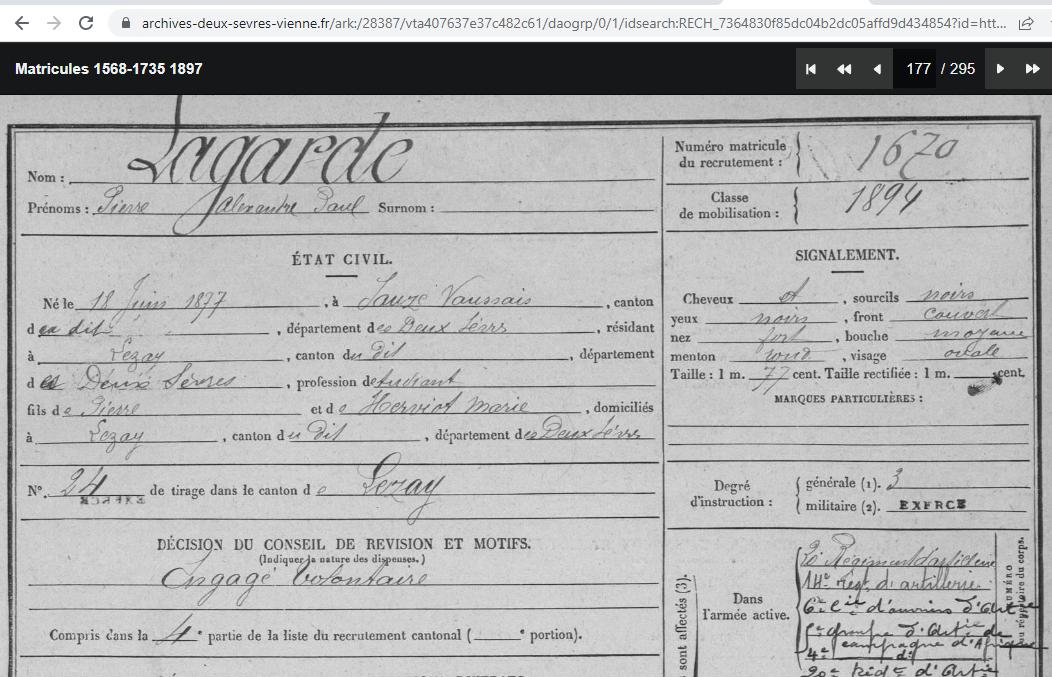 archives-deux-sevres-vienne.fr/ark:/28387/vta407637e37c482c61/daogrp/0/1/idsearch:RECH_7364830f85dc04b2dc05affd9d434854?id=htt...
Matricules 1568-1735 1897
177 / 295
Nom : Lagarde
Prénoms : Pierre Alexandre Paul Surnom :
Numéro matricule du recrutement : 1670
Classe de mobilisation : 1894
ÉTAT CIVIL.
Né le 18 Juin 1877, à Sauzé Vaussais, canton
du dit, département des Deux Sèvres, résidant
à Lezay, canton du dit, département
des Deux Sèvres, profession d'étudiant
fils de Pierre et de Herviot Marie, domiciliés
à Lezay, canton du dit, département des Deux Sèvres
N° 24 de tirage dans le canton de Lezay
SIGNALEMENT.
Cheveux et, sourcils noirs
yeux noirs, front couvert
nez fort, bouche moyenne
menton rond, visage ovale
Taille : 1 m. 77 cent. Taille rectifiée : 1 m. cent.
MARQUES PARTICULIÈRES :
Degré d'instruction : générale (1). 3
militaire (2). EXERCE
DÉCISION DU CONSEIL DE REVISION ET MOTIFS.
(Indiquer la nature des dispenses.)
Engagé Volontaire
Compris dans la 4e partie de la liste du recrutement cantonal ( e portion).
sont affectés (3).
Dans l'armée active.
Régiment d'artillerie
14e Régt d'artillerie
6e Cie d'ouvriers d'Artie
groupe d'Artie de
campagne d'Afrique
4e
20e d'Artie
NUMÉRO
au répertoire du corps.